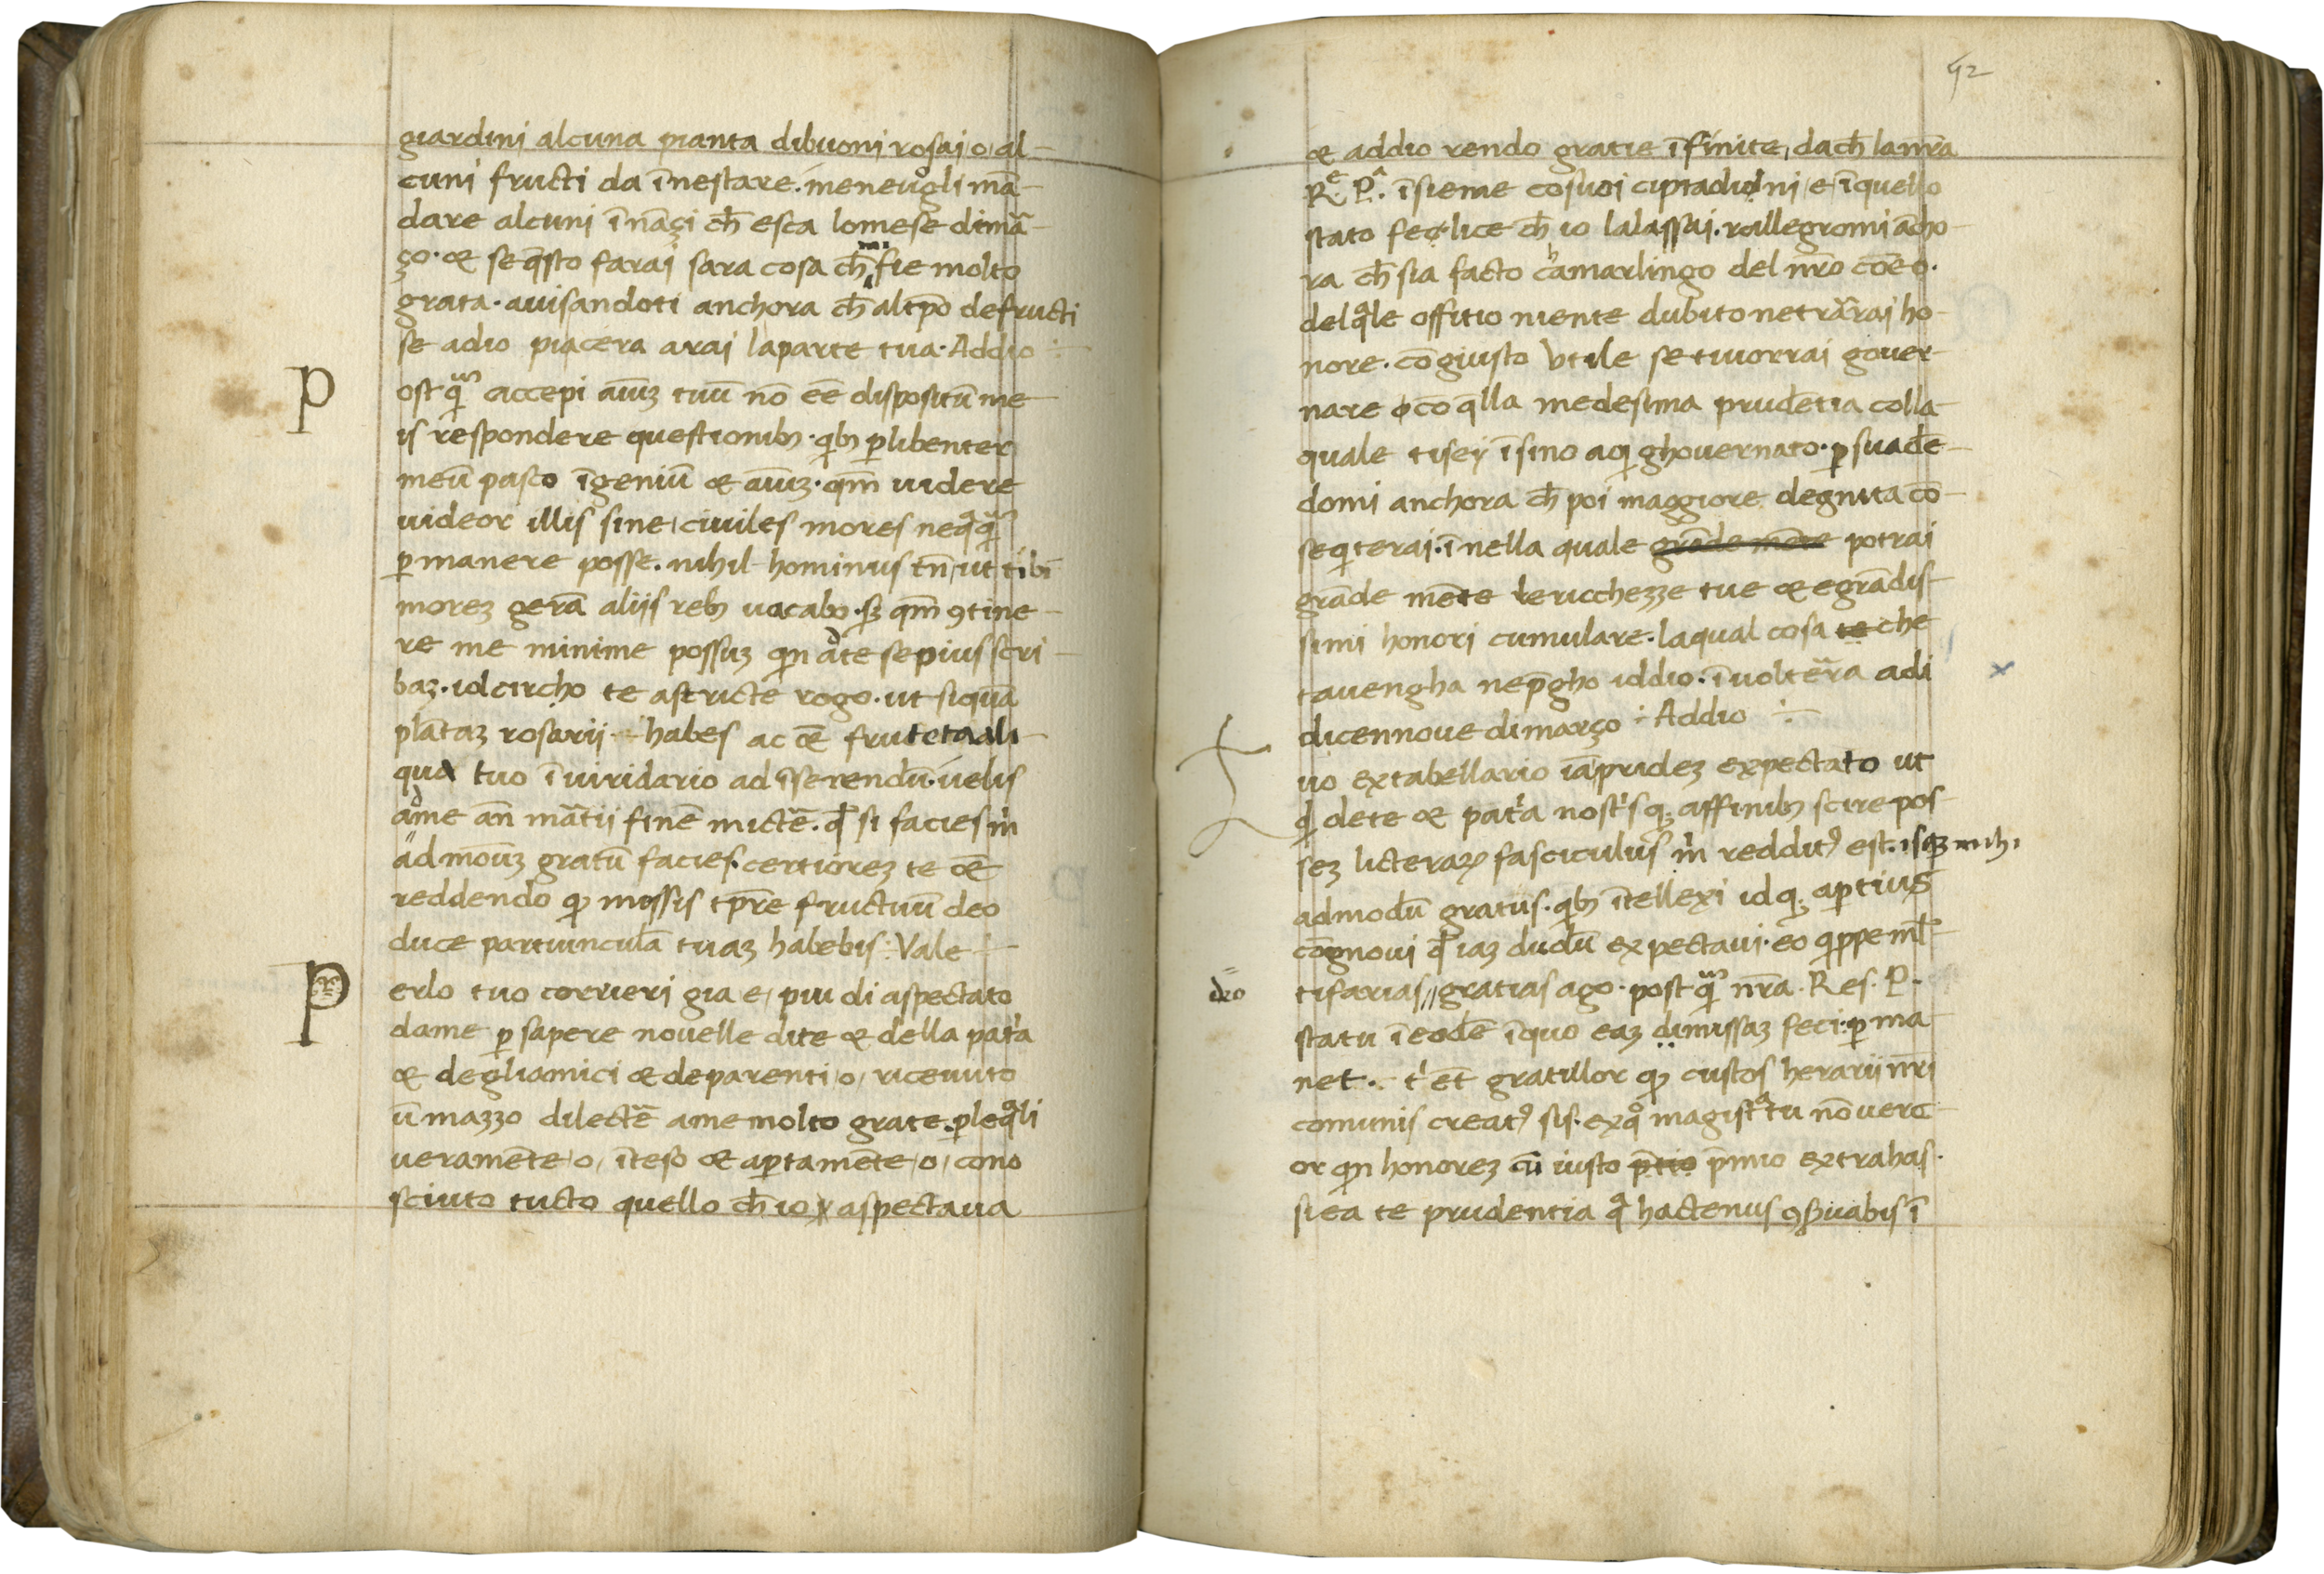 giardini alcuna pianta dibuoni rosai, o, al-
cuni fructi da īnestare. meneuogli mā-
dare alcuni īnāçi ch̄ esca lomese dimā-
ço. & se q̄sto farai sara cosa ch̄ mi fie molto
grata. auisandoti anchora ch̄ altp̄o defructi
se adio piacera arai laparte tua. Addio ÷
P
ostq̄ꝫ accepi aīuꝫ tuū nō eē dispositū me
is respondere questionibꝫ. qibꝫ ꝑlibenter
meū pasco īgeniū & aīuꝫ. qm̄ uidere
uideor illis sine, ciuiles mores neq̄q̄ꝫ
ꝑmanere posse. nihil hominus tn̄, ut tibi
moreꝫ gerā aliis rebꝫ uacabo. sꝫ qm̄ ꝯtine-
re me minime possuꝫ qin adte sepius scri-
baꝫ. idcircho te astricte rogo. ut siquā
plātaꝫ rosarii habes ac eē frutetaali-
qua tuo ī uiridario ad īserendū. uelis
adme an̄ mātii finē mictē. qđ si facies m̍
admōuꝫ gratū facies. certioreꝫ te eē
reddendo qꝫ messis tp̄re fructuū deo
duce partiunculā tuaꝫ habebis: Vale
P
erlo tuo corrieri gia e, piu di aspectato
dame ꝑ sapere nouelle dite & della pat̍a
& degliamici & deparenti, o, riceuuto
ū mazzo dilectē ame molto grate. ꝑleq̄li
ueramēte, o, īteso & aꝑtamēte, o, cono
sciuto tucto quello ch̄ io aspectaua
92
& addio rendo gratie īfinite, dach̄ lanr̄a
R.e P.a īsieme cosuoi ciptadini, e, īquello
stato felice ch̄ io lalassai. rallegromi ācho-
ra ch̄ sia facto camarlingo del nr̄o coēo.
delq̄le offitio niente dubito netrārai ho-
nore. cō giusto Vtile se tuorrai gouer-
nare co q̄lla medesima prudētia colla
quale tisey īsino aqi ghouernato. ꝑsuadē-
domi anchora ch̄ poi maggiore degnita cō-
seqiterai. īnella quale grāde mēte potrai
grāde mēte lericchezze tue & egrādis-
simi honori cumulare. laqual cosa te che
tauengha nep̄gho iddio. ī uoltēra adi
dicennoue dimarço ÷ Addio ÷
uo extabellario iāprideꝫ expectato ut
qꝫ dete & pat̍a nost̍sqꝫ affinibꝫ scire pos-
seꝫ licteraꝝ fasciculus m̍ redditꝰ est. isqꝫ mihi
admodū gratus. qibꝫ ītellexi idqꝫ aꝑtius
cōgnoui qđ iaꝫ dudū expectaui. eo qippe ml̄-
deo
tifarias // gratias ago. postq̄ꝫ nr̄a. Res. P.
statu ī eodē īquo eaꝫ dimissaꝫ feci. ꝑma-
net. t̍ et̄ gratulor qꝫ custos herarii nr̄i
comunis creatꝰ sis. exqo magistatu nō uere-
or qin honoreꝫ cū iusto p̄tio p̄mio extrahas.
siea te prudentia qa hactenus ꝯseruabis ī